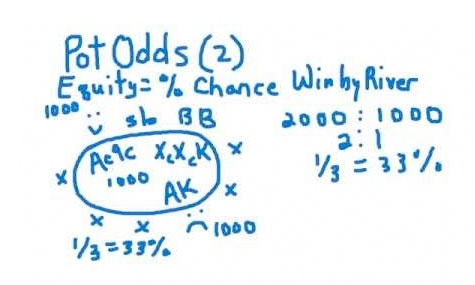 Pot Odds (2)
Equity = % Chance Win by River
1000 sb BB
2000 : 1000
2 : 1
1/3 = 33%
Ac9c XcXcK X
1000
X AK X
X X 1000
1/3 = 33%